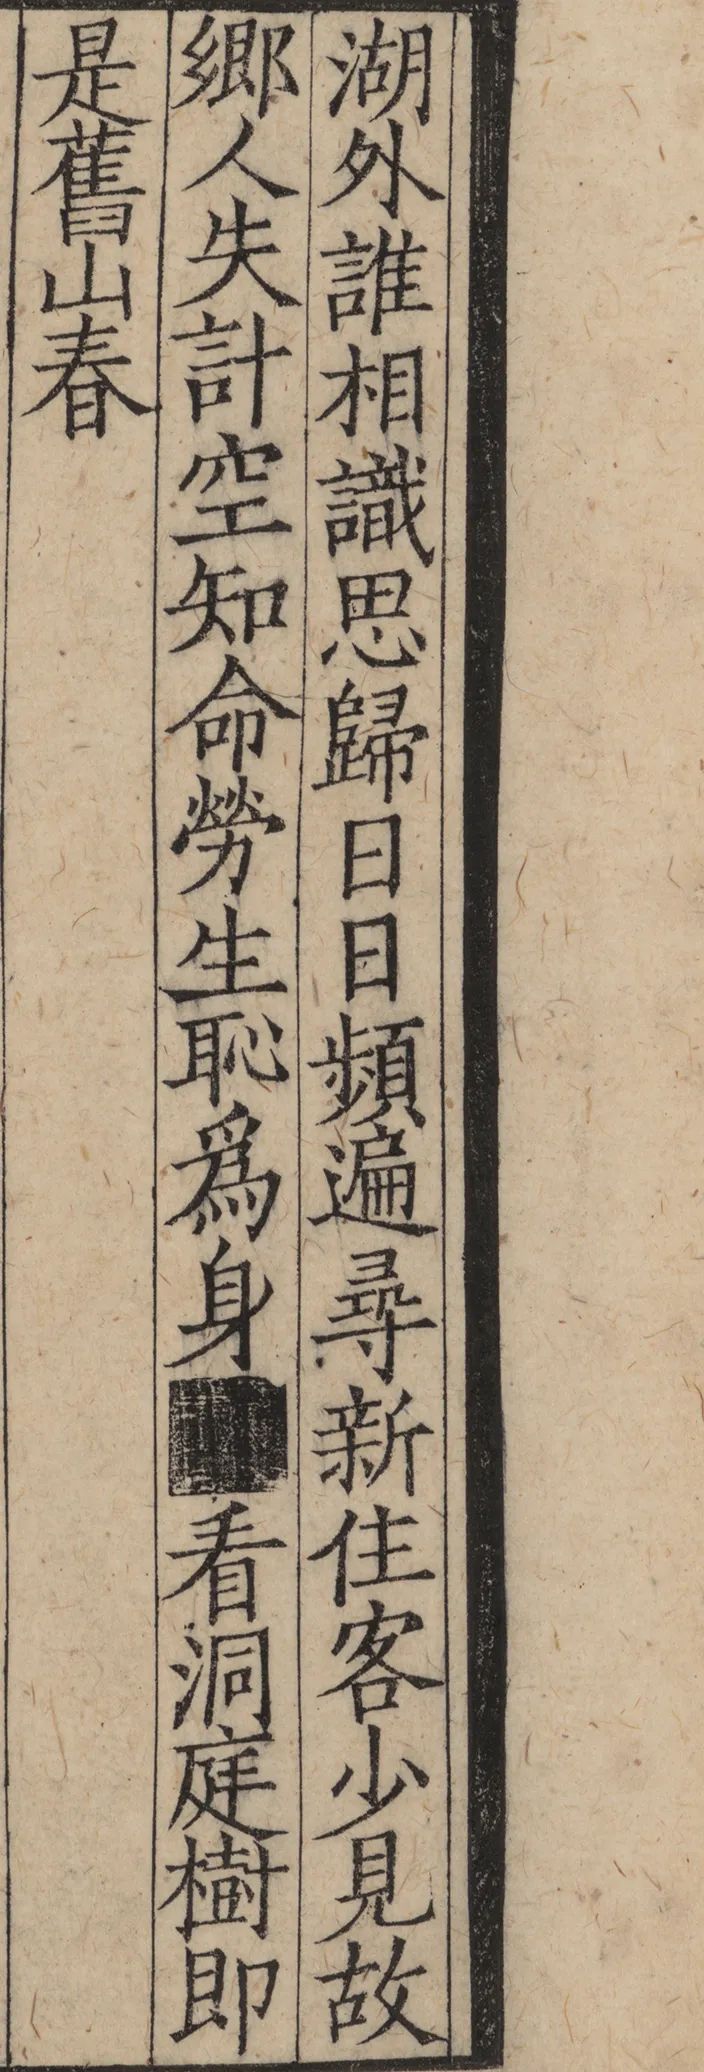 湖外誰相識思歸日日頻遍尋新住客少見故
鄉人失計空知命勞生恥爲身■看洞庭樹即
是舊山春